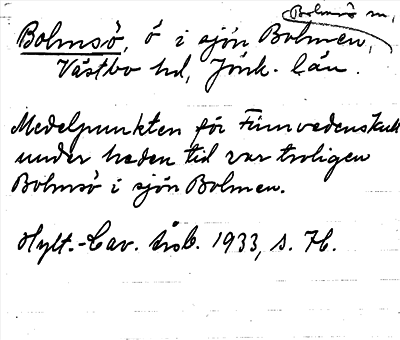 Bolmsö m.
Bolmsö, ö i sjön Bolmen,
Västbo hd, Jönk. län.
Medelpunkten för Finnvedens kult
under heden tid var troligen
Bolmsö i sjön Bolmen.
Hylt.-Cav. årsb. 1933, s. 76.